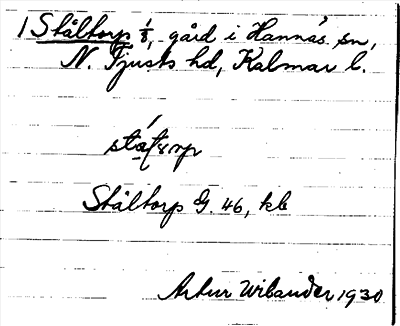 1 Ståltorp 1/8, gård i Hannäs sn,
N. Tjusts hd, Kalmar l.
Ståltorp G. 46, kb
Artur Wibander 1930